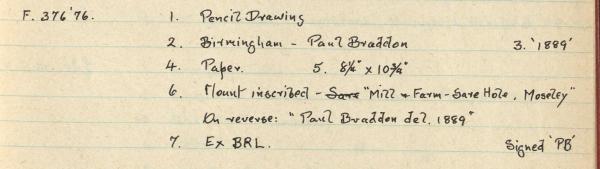 F. 376'76. 1. Pencil Drawing
2. Birmingham - Paul Braddon 3. '1889'
4. Paper. 5. 8¼" x 10¾"
6. Mount inscribed - Sare "Mill & Farm - Sare Hole, Moseley"
On reverse: "Paul Braddon del. 1889"
7. Ex BRL. Signed 'PB'